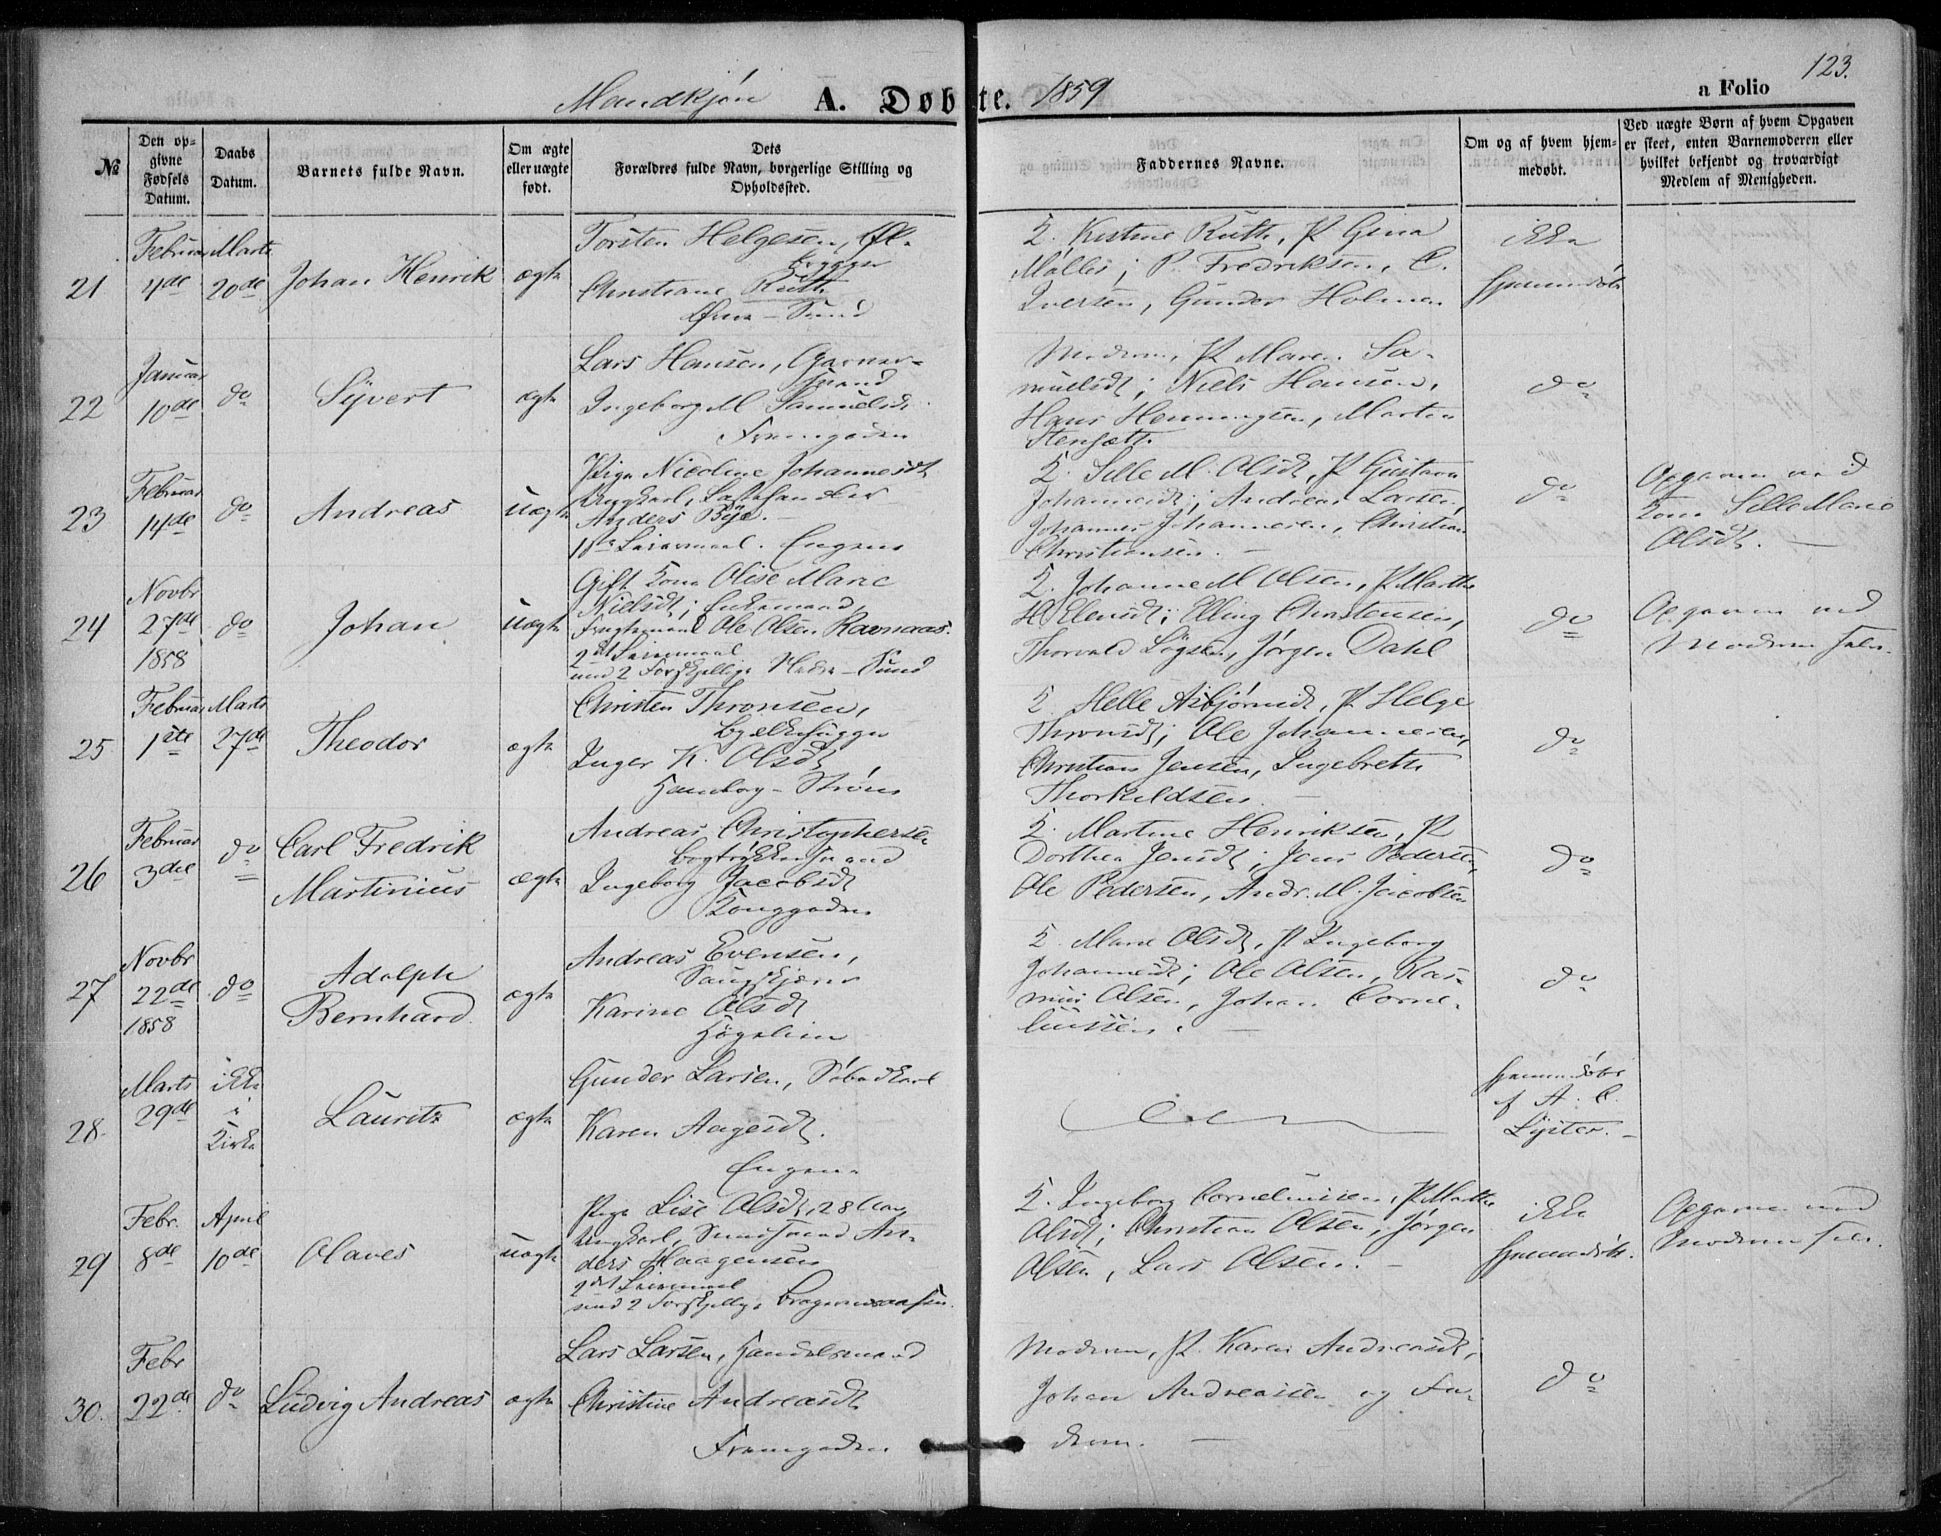 Mandkjøn A. Døbte. 1859
a Folio 123.
№
Den opgivne Fødsels Datum.
Daabs Datum.
Barnets fulde Navn.
Om ægte eller uægte født.
Dets Forældres fulde Navn, borgerlige Stilling og Opholdssted.
Faddernes Navne.
Om og af hvem hjemmedøbt.
Ved uægte Børn af hvem Opgaven er skeet, enten Barnemoderen eller hvilket bekjendt og troværdigt Medlem af Menigheden.
21
Februar 4de
Marts 20de
Johan Henrik
ægte
Torsten Helgesen, Øl-
brygger
Christiane Ruth
Øvre-Sund
K. Kistine Ruth, P. Gina
Møller; P. Fredriksen, C.
Iversen, Gunder Holmen
ikke
hjemmedøbt
22
Januar 10de
do
Syvert
ægte
Lars Hansen,
Ingeborg M. Samuelsdt.
Fremgaden
Moderen, P. Maren Sa-
muelsdt; Niels Hansen,
Hans Henningsen, Martin
Stensætt.
do
23
Februar 14de
do
Andreas
uægte
Pige Nicoline Johannesdt
Ungkarl,
Anders Bye.
1ste Leiermaal. Engene
K. Sille M. Olsdt, P. Gustava
Johannesdt; Andreas Larsen,
Johannes Johannesen, Christian
Christiansen.
do
Opgaven ved
Kone Sille Marie
Olsdt.
24
Novbr 27de 1858
do
Johan
uægte
Gift Kone Olise Marie
Nielsdt; Enkemand,
Ole Olsen Ravnaas.
2det Leiermaal
med 2 Forskjellige - Sund
K. Johanne M. Olsen, P. Marthe
H. Elensdt; Elling Christensen,
Thorvald Løgsen, Jørgen Dahl
do
Opgaven ved
Moderen selv.
25
Februar 1ste
Marts 27de
Theodor
ægte
Christen Thronsen,
Bjælkehugger
Inger K. Olsdt
Hamborg-Strøm
K. Helle Asbjørnsdt, P. Helge
Thronsdt; Ole Johannesen,
Christian Jensen, Ingebreth
Thorkildsen.
do
26
Februar 3die
do
Carl Fredrik
Martinius
ægte
Andreas Christophersen
Bogtrykkersvend
Ingeborg Jacobsdt
Konggaden
K. Martine Henriksen, P.
Dorthea Jensdt; Jens Pedersen,
Ole Pedersen, Andr. M. Jacobsen
do
27
Novbr 22de 1858
do
Adolph
Bernhard
ægte
Andreas Evensen,
Karine Olsdt
Høgelien
K. Marie Olsdt, P. Ingeborg
Johannesdt; Ole Olsen, Ras-
mus Olsen, Johan Corne-
liussen.
do
28.
Marts 29de
ikke i Kirke
Lauritz
ægte
Gunder Larsen,
Karen Aagesdt.
Engene
hjemmedøbt
af A. C.
Lyster.
29
Febr. 8de
April 10de
Olaves
uægte
Pige Lise Olsdt, 28 Aar
Ungkarl, An-
ders Haagensen
2det Leiermaal
med 2 Forskjellige Bragernesaasen.
K. Ingeborg Corneliussen, P. Marthe
Olsdt; Christian Olsen, Jørgen
Olsen, Lars Olsen.
ikke
hjemmedøbt.
Opgaven ved
Moderen selv.
30.
Febr 22de
do
Ludvig Andreas
ægte
Lars Larsen, Handelsmand
Christine Andreasdt
Fremgaden
Moderen, P. Karen Andreasdt;
Johan Andreassen og Fa-
deren.
do